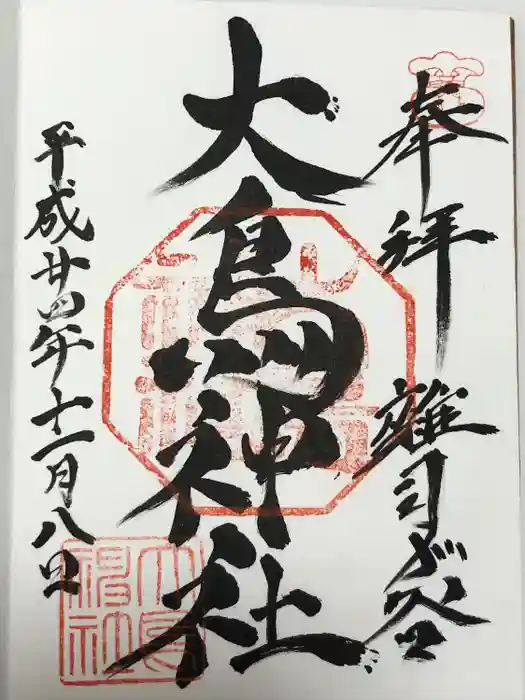 奉拝
雑司が谷
大鳥神社
平成廿四年十一月八日
大鳥神社